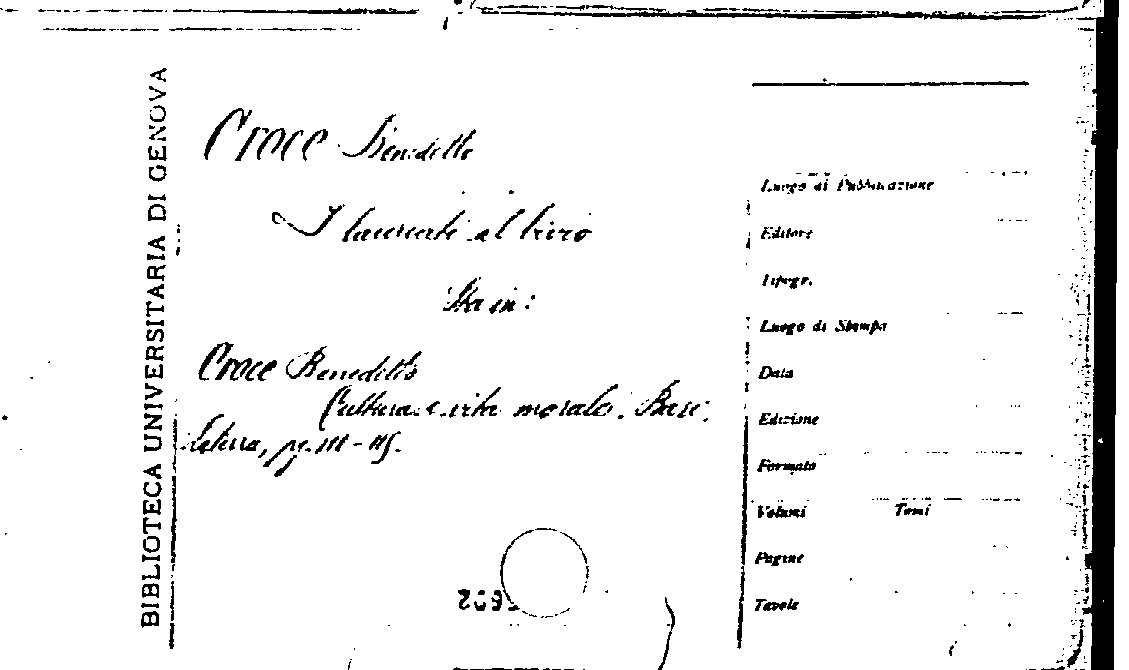 BIBLIOTECA UNIVERSITARIA DI GENOVA
Croce Benedetto
I laureati al bivio
Sta in:
Croce Benedetto
Cultura e vita morale. Bari,
Laterza, pg. 111-115.
Luogo di Pubblicazione
Editore
Tipogr.
Luogo di Stampa
Data
Edizione
Formato
Volumi Tomi
Pagine
Tavole